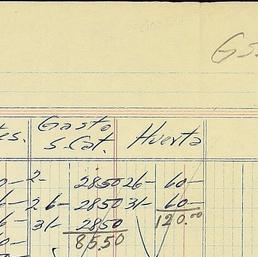 Gs
es. Gasto S. Cat. Huerta
2- 28 50 26- 60-
26- 28 50 31- 60-
31- 28 50 120.00
85.50